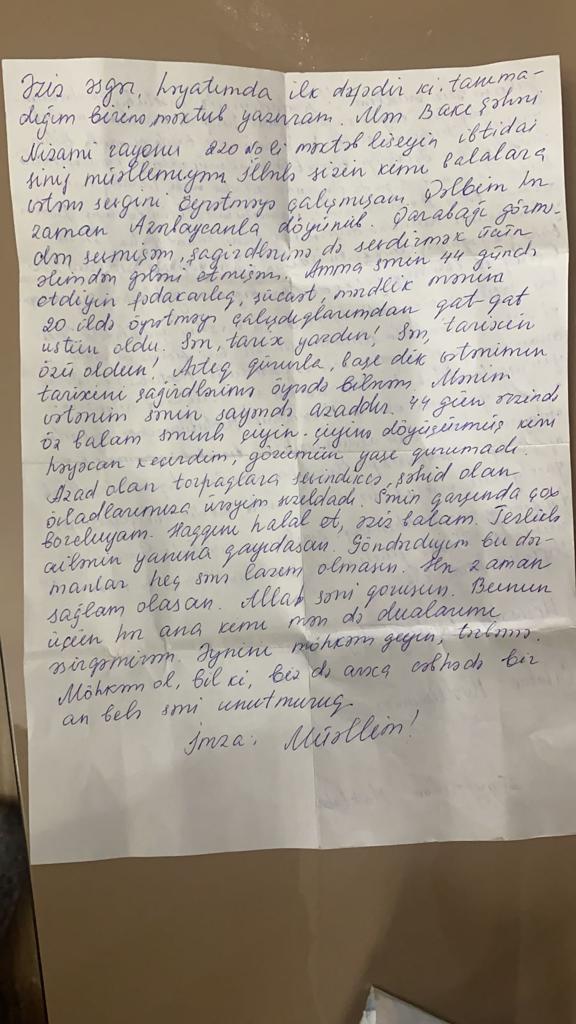 Əziz əsgər, həyatımda ilk dəfədir ki, tanıma-
dığım birinə məktub yazıram. Mən Bakı şəhəri
Nizami rayonu 220 №li məktəb liseyin ibtidai
sinif müəllimiyəm. İllərlə sizin kimi balalara
vətən sevgisini öyrətməyə çalışmışam. Qəlbim hər
zaman Azərbaycanla döyünüb. Qarabağı görmə-
dən sevmişəm, şagirdlərimə də sevdirmək üçün
əlimdən gələni etmişəm. Amma sənin 44 gündə
etdiyin fədakarlıq, şücaət, mərdlik mənim
20 ildə öyrətməyə çalışdıqlarımdan qat-qat
üstün oldu. Sən, tarix yazdın! Sən, tarixin
özü oldun! Artıq qürurla, başı dik vətənimin
tarixini şagirdlərimə öyrədə bilərəm. Mənim
vətənim sənin sayəndə azaddır. 44 gün ərzində
öz balam səninlə çiyin-çiyinə döyüşürmüş kimi
həyəcan keçirdim, gözümün yaşı qurumadı.
Azad olan torpaqlara sevindikcə, şəhid olan
övladlarımıza ürəyim sızıldadı. Sənin qarşında çox
borcluyam. Haqqını halal et, əziz balam. Tezliklə
ailənin yanına qayıdasan. Göndərdiyim bu dər-
manlar heç sənə lazım olmasın. Hər zaman
sağlam olasan. Allah səni qorusun. Bunun
üçün hər ana kimi mən də dualarımı
əsirgəmirəm. Əynini möhkəm geyin, tərləmə.
Möhkəm ol, bil ki, biz də arxa cəbhədə bir
an belə səni unutmuruq.
İmza: Müəllim!